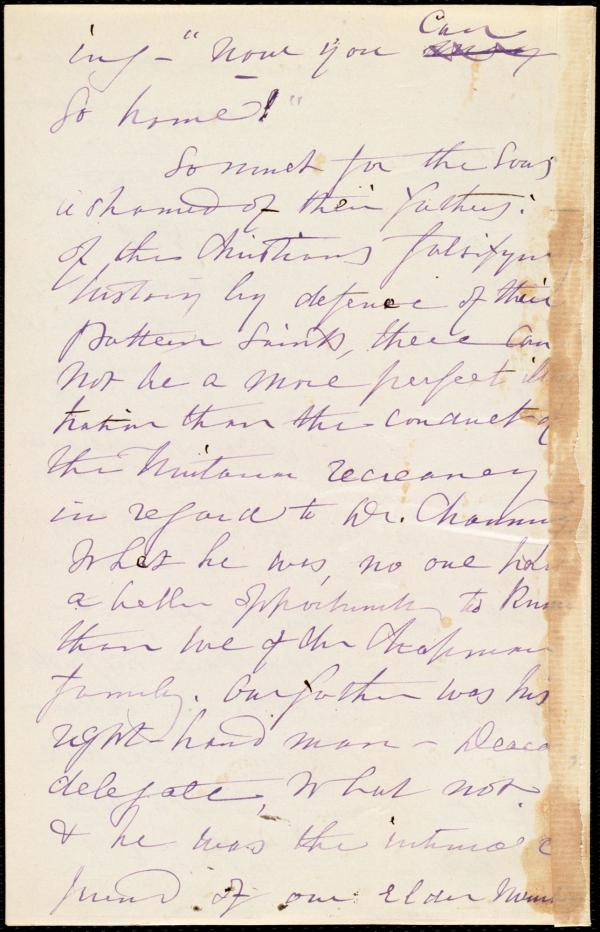 ing - "Now you can may
Go home!"
So much for the Sons
ashamed of their fathers:
of the Christians falsifying
history by defence of their
Pattern Saints, there can
not be a more perfect illus
tration than the conduct of
the Unitarian recreancy
in regard to Dr. Channing
What he was, no one had
a better opportunity to Know
than we of the Chapman
family. Our father was his
right-hand man - Deacon
delegate, What not.
& he was the intimate
friend of our elder